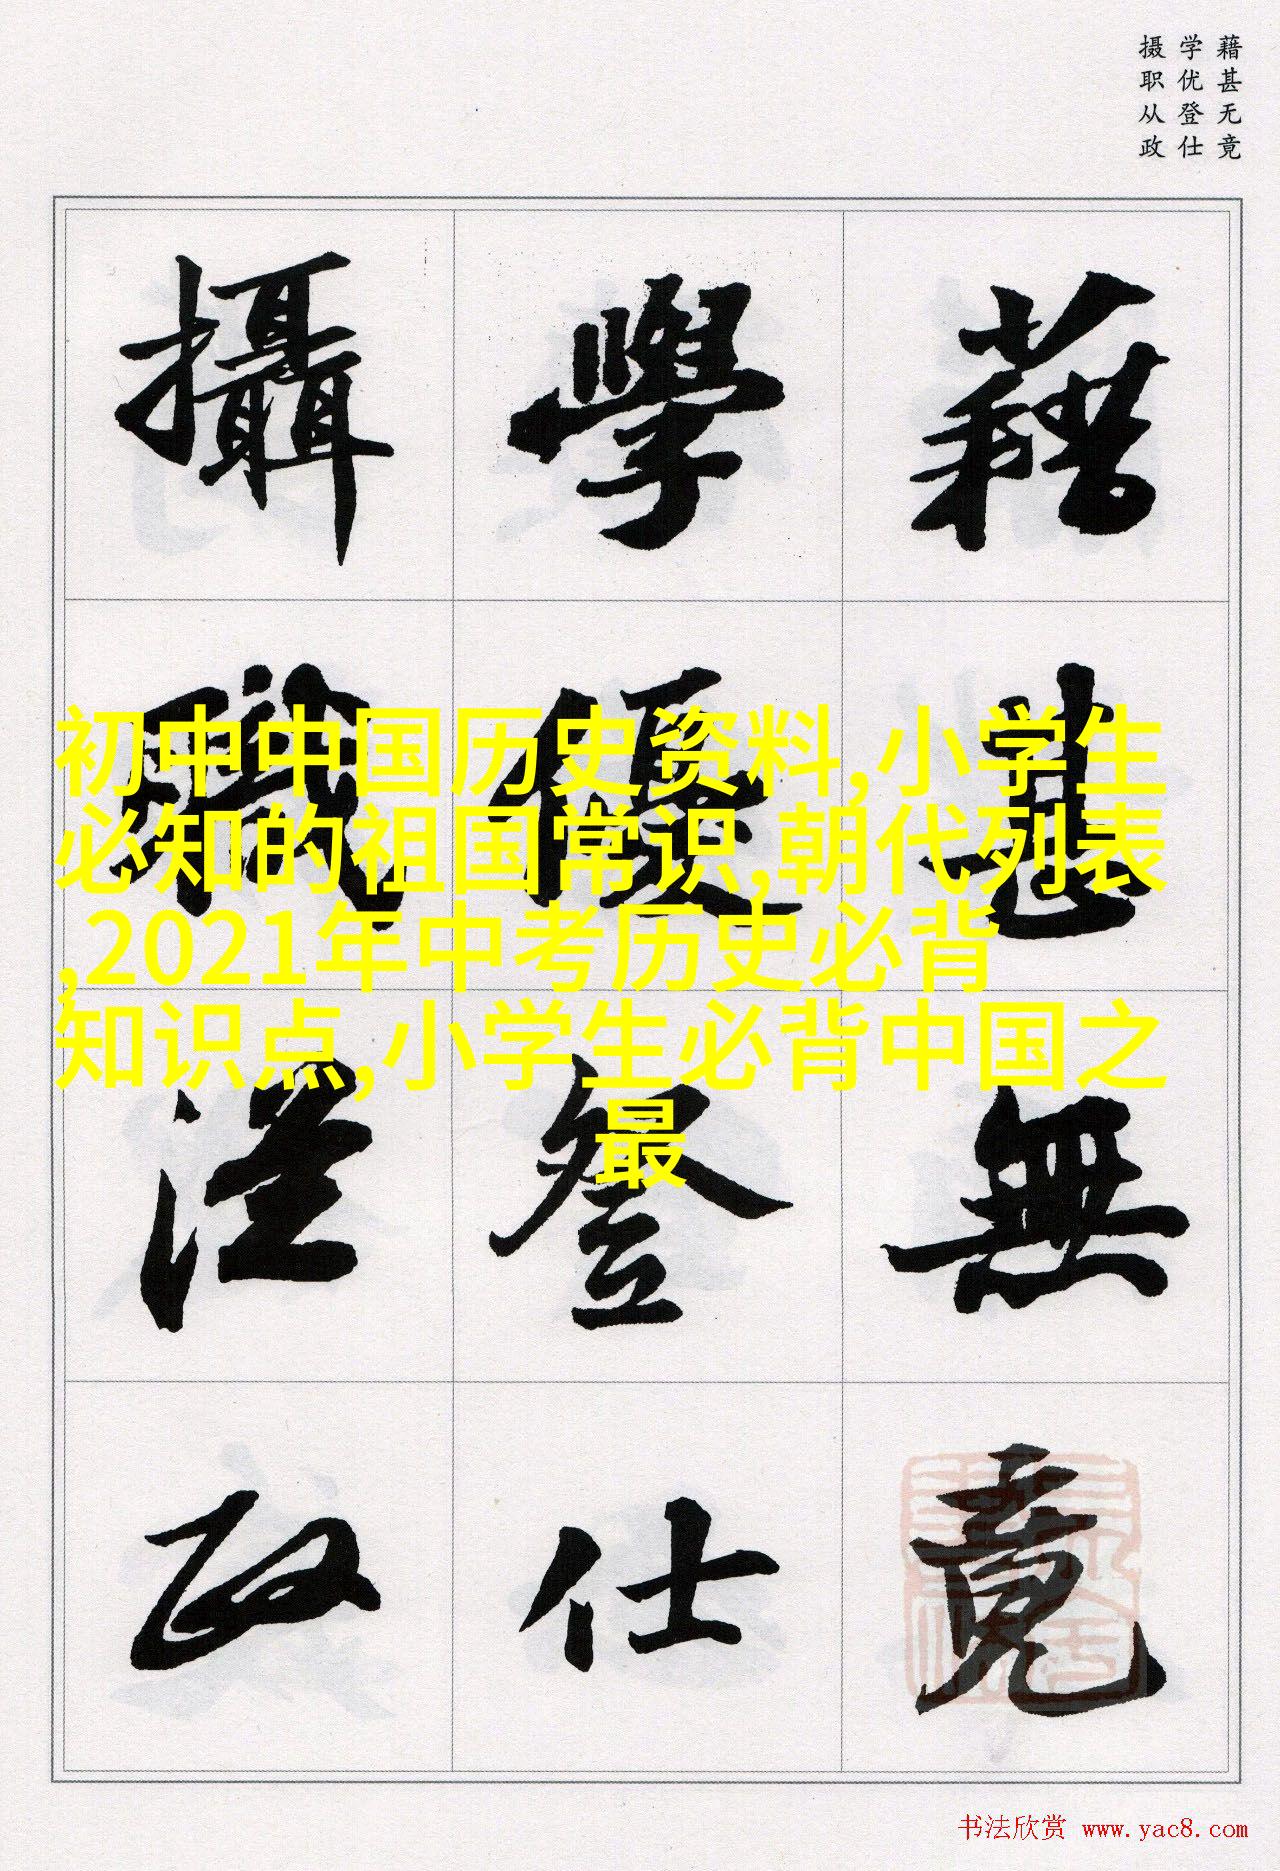 藉甚无竟
学优登仕
摄职从政
藉甚無竟
學優登仕
攝職從政
初中中国历史资料,小学生
必知的祖国常识,朝代列表
,2021年中考历史必背
知识点,小学生必背中国之
最
书法欣赏 www.yac8.com